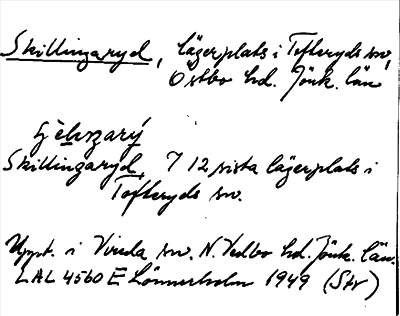 Skillingaryd, lägerplats i Tofteryds sn,
Östbo hd. Jönk. län
Skillingaryd, I 12 sista lägerplats i
Tofteryds sn.
Uppt. i Vireda sn. N. Vedbo hd. Jönk. län.
LAL 4560 E Lönnerholm 1949 (Str)